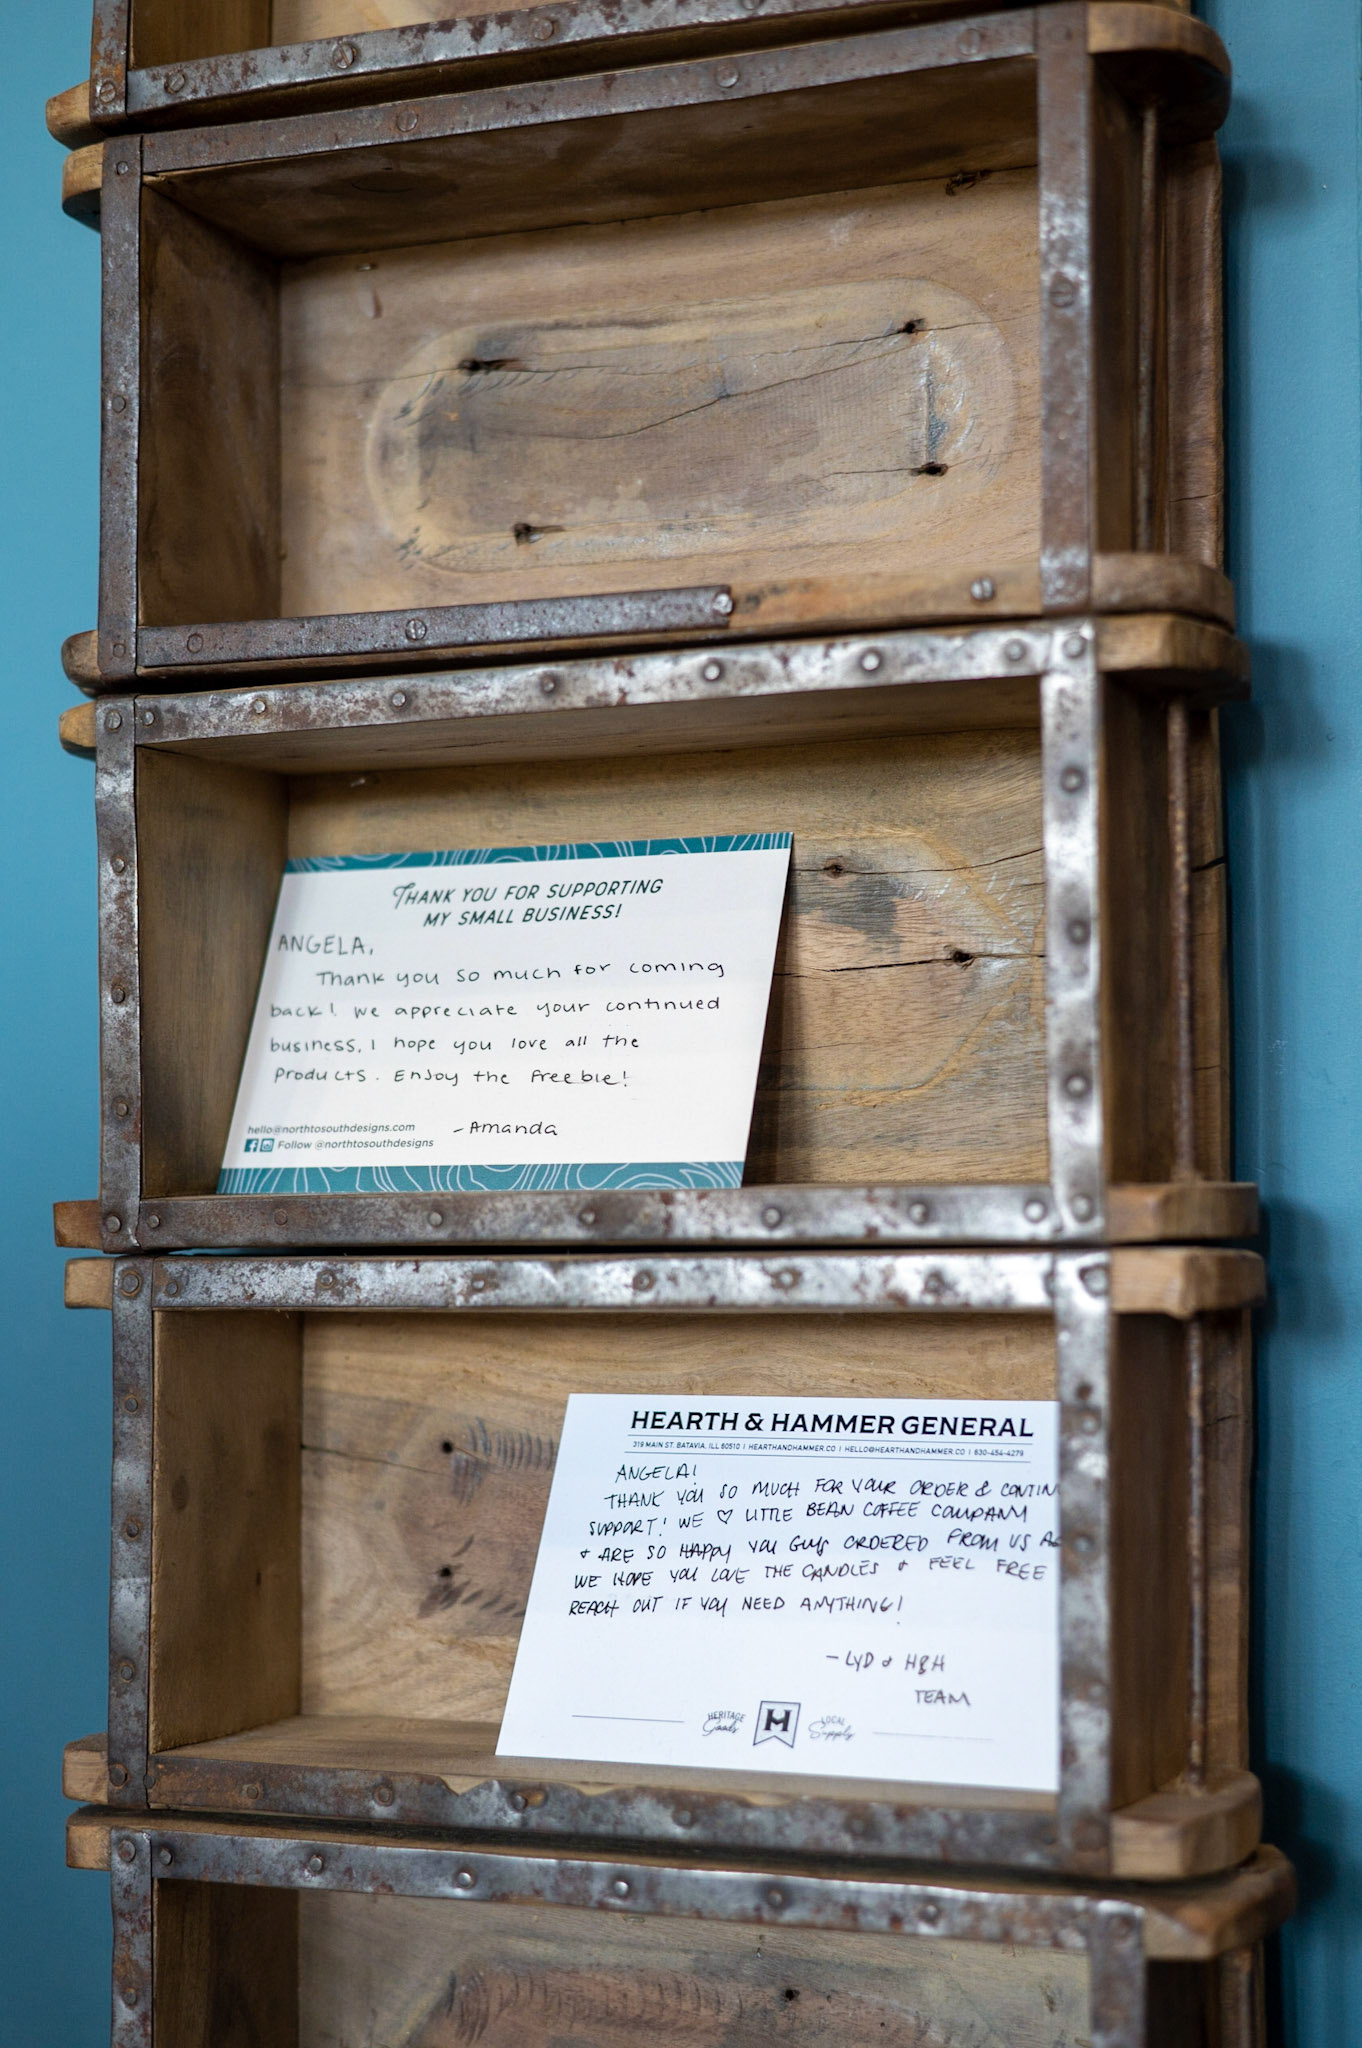 THANK YOU FOR SUPPORTING
MY SMALL BUSINESS!
ANGELA,
Thank you so much for coming
back! We appreciate your continued
business, I hope you love all the
products. Enjoy the freebie!
-Amanda
hello@northtosouthdesigns.com
Follow @northtosouthdesigns
HEARTH & HAMMER GENERAL
319 MAIN ST. BATAVIA, ILL 60510 | HEARTHANDHAMMER.CO | HELLO@HEARTHANDHAMMER.CO | 630-454-4279
ANGELA!
THANK YOU SO MUCH FOR YOUR ORDER & CONTIN
SUPPORT! WE ♡ LITTLE BEAN COFFEE COMPANY
+ ARE SO HAPPY YOU GUYS ORDERED FROM US
WE HOPE YOU LOVE THE CANDLES + FEEL FREE
REACH OUT IF YOU NEED ANYTHING!
- LYD + H&H
TEAM
HERITAGE Goods H LOCAL Supply